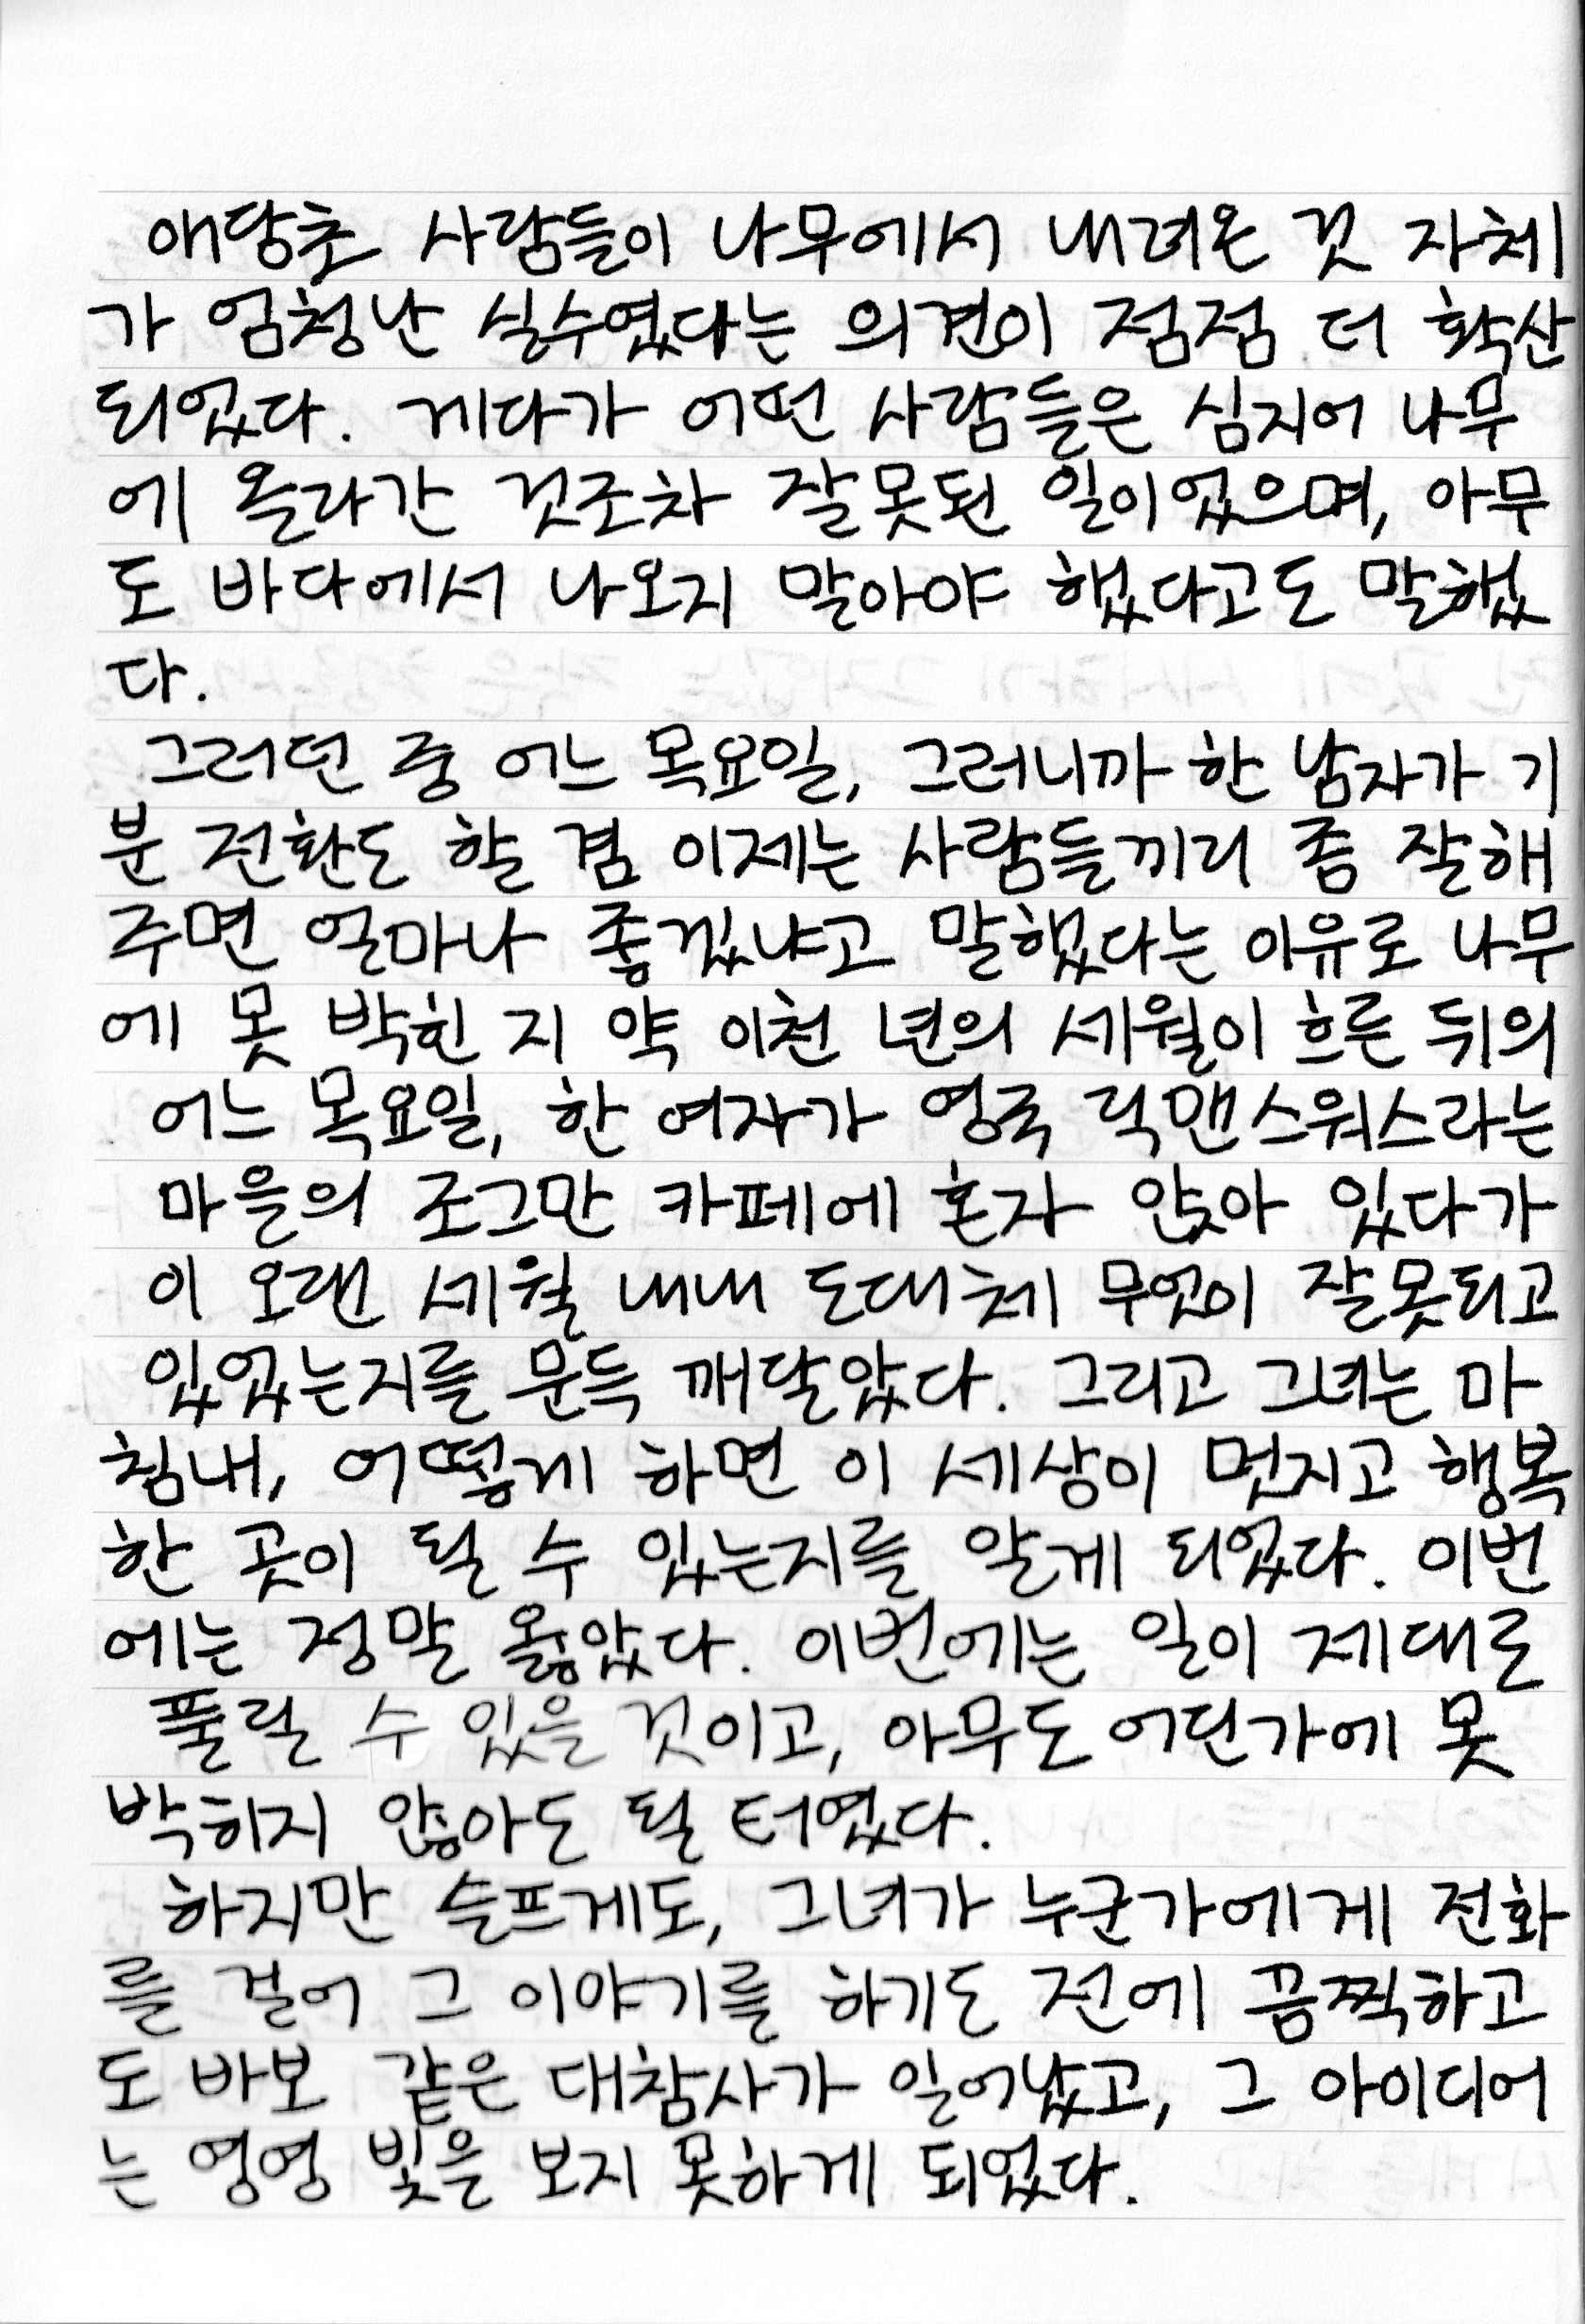 애당초 사람들이 나무에서 내려온 것 자체
가 엄청난 실수였다는 의견이 점점 더 확산
되었다. 게다가 어떤 사람들은 심지어 나무
에 올라간 것조차 잘못된 일이었으며, 아무
도 바다에서 나오지 말아야 했다고도 말했
다.
그러던 중 어느 목요일, 그러니까 한 남자가 기
분 전환도 할 겸 이제는 사람들끼리 좀 잘해
주면 얼마나 좋겠냐고 말했다는 이유로 나무
에 못 박힌 지 약 이천 년의 세월이 흐른 뒤의
어느 목요일, 한 여자가 영국 릭맨스워스라는
마을의 조그만 카페에 혼자 앉아 있다가
이 오랜 세월 내내 도대체 무엇이 잘못되고
있었는지를 문득 깨달았다. 그리고 그녀는 마
침내, 어떻게 하면 이 세상이 멋지고 행복
한 곳이 될 수 있는지를 알게 되었다. 이번
에는 정말 옳았다. 이번에는 일이 제대로
풀릴 수 있을 것이고, 아무도 어딘가에 못
박히지 않아도 될 터였다.
하지만 슬프게도, 그녀가 누군가에게 전화
를 걸어 그 이야기를 하기도 전에 끔찍하고
도 바보 같은 대참사가 일어났고, 그 아이디어
는 영영 빛을 보지 못하게 되었다.